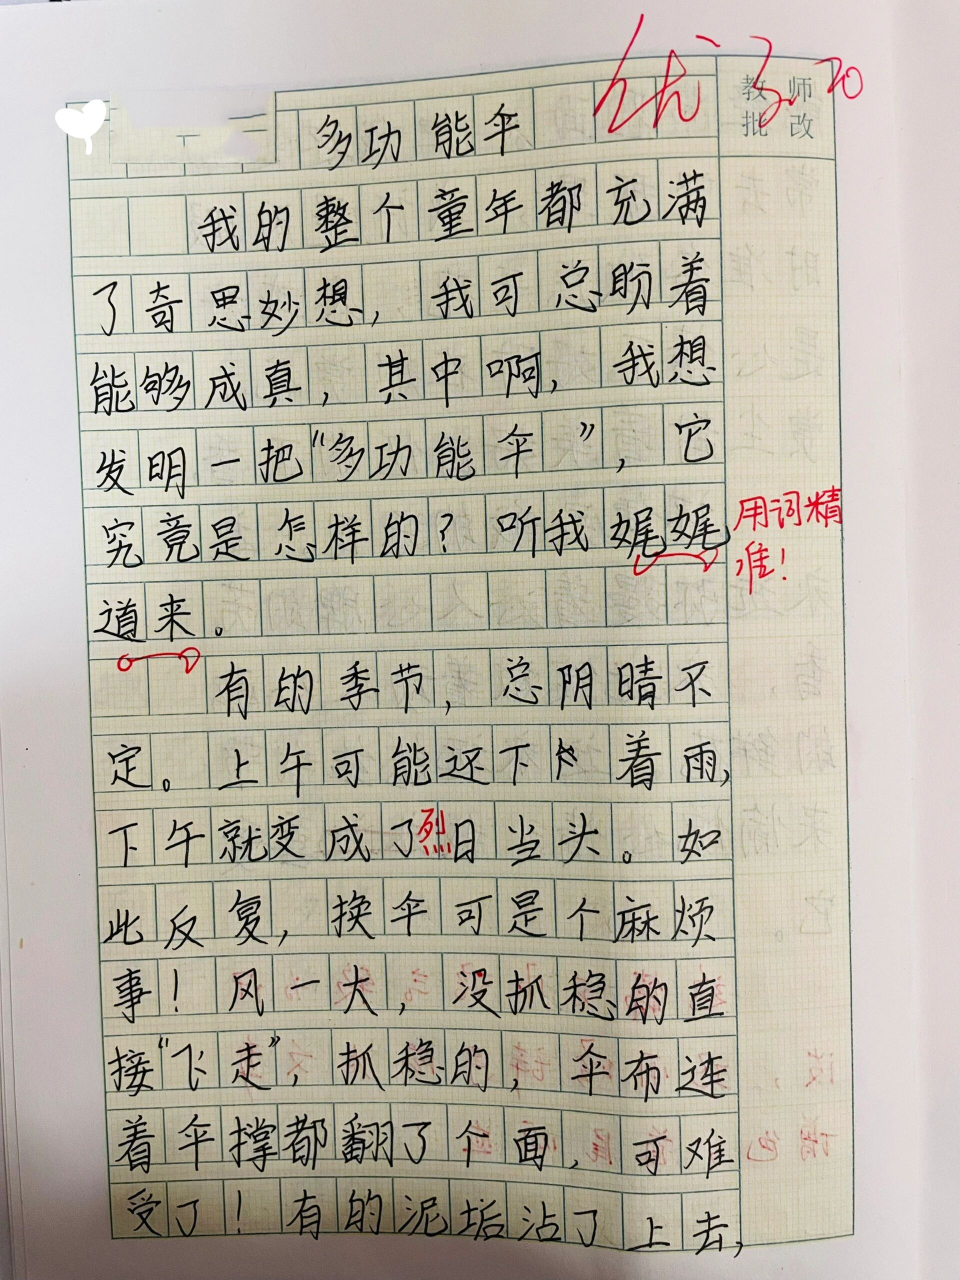 优 3.20
教师
批改
多功能伞
我的整个童年都充满
了奇思妙想，我可总盼着
能够成真，其中啊，我想
发明一把“多功能伞”，它
究竟是怎样的？听我娓娓
用词精
准！
道来。
有的季节，总阴晴不
定。上午可能还下着雨，
下午就变成了烈日当头。如
此反复，换伞可是个麻烦
事！风一大，没抓稳的直
接“飞走”，抓稳的，伞布连
着伞撑都翻了个面，可难
受了！有的泥垢沾了上去，